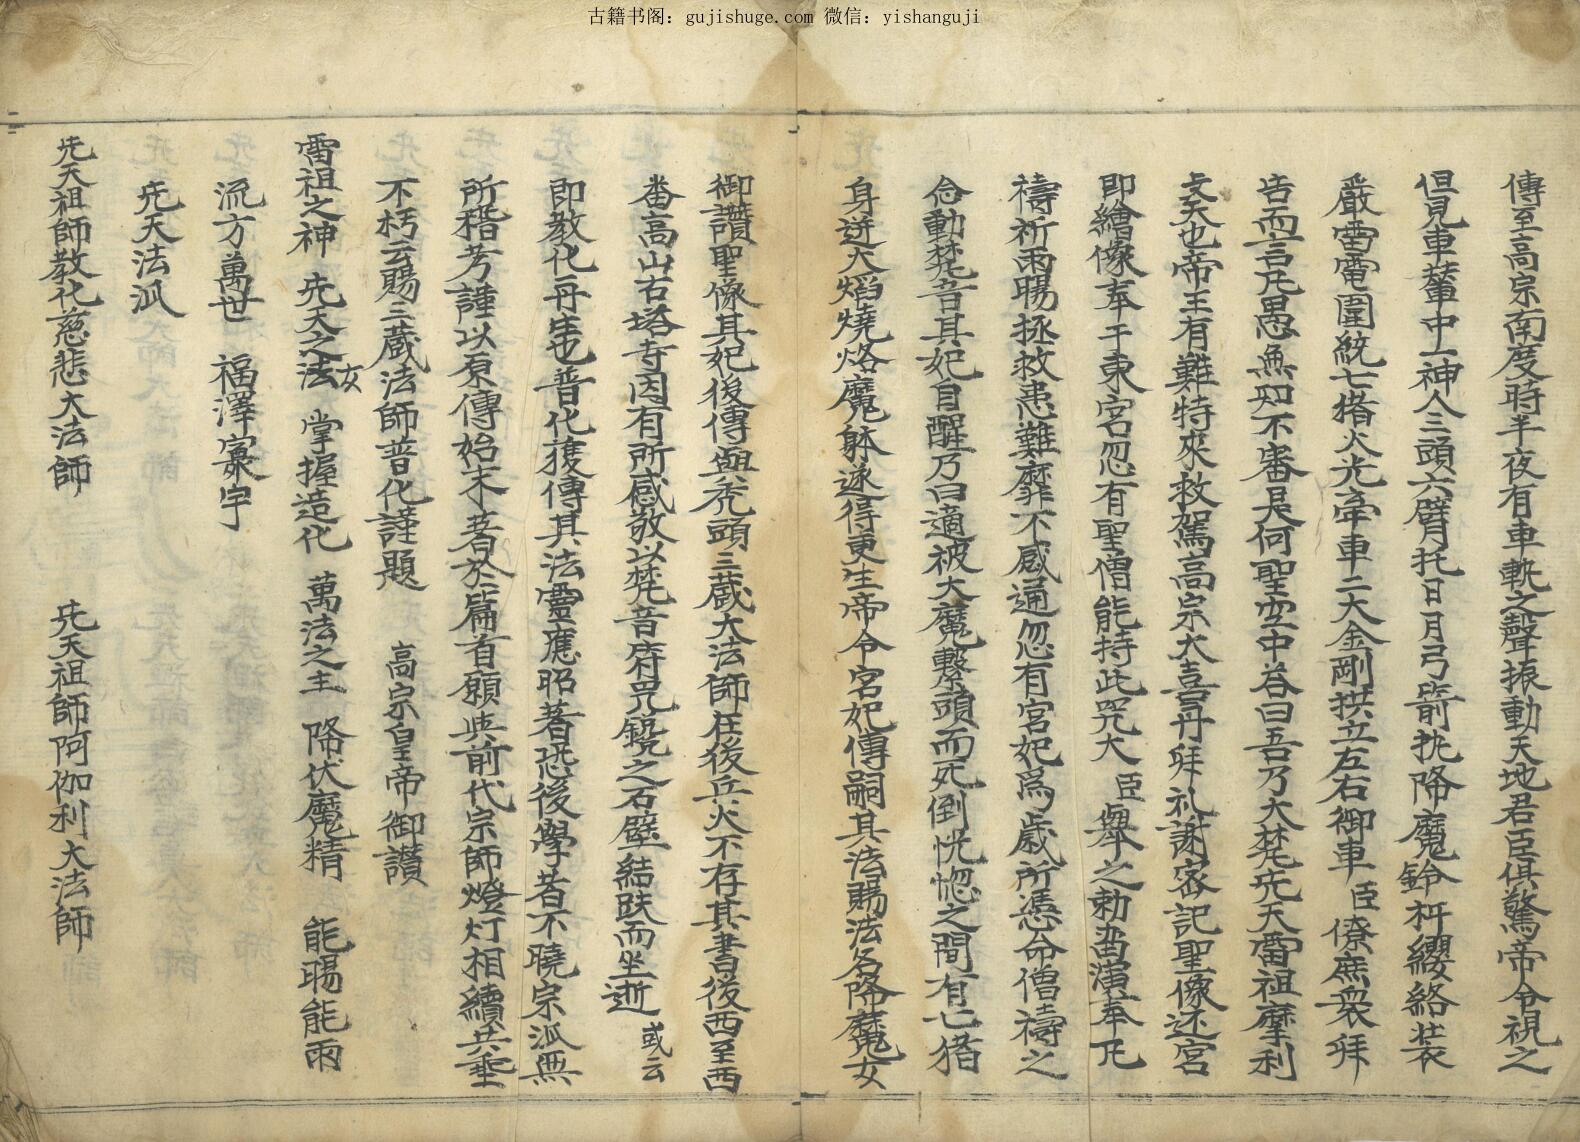 古籍书阁：gujishuge.com 微信：yishanguji
傳至高宗南度時半夜有車軏之聲振動天地君臣俱驚帝令視之
但見車輦中一神人三頭六臂托日月弓箭執降魔鈴杵纓絡裝
嚴雷電圍統七猪火光牽車二大金剛拱立左右御車臣僚庶衆拜
告而言凡愚無知不審是何聖空中答曰吾乃大梵先天雷祖摩利
支天也帝王有難特來救駕高宗大喜再拜礼謝密記聖像还宮
即繪像奉于東宮忽有聖僧能持此咒大臣舉之勅畨演奉凡
禱祈雨暘拯救患難靡不感通忽有宮妃爲歲所憑命僧禱之
念動梵音其妃自醒乃曰適被大魔繫頭而死倒恍惚之間有七猪
身迸大焰燒烙魔躰遂得更生帝令宮妃傳嗣其法賜法名降魔女
御讚聖像其妃後傳與禿頭三蔵大法師在後兵火不存其書後西至西
番高山石塔寺因有所感敬以梵音府咒鐃之石壁結趺而坐逝 或云
即教化再生也普代獲傳其法靈應昭著恐後學者不曉宗泒無
所稽考謹以原傳始末著於篇首願與前代宗師燈灯相續共垂
不朽云賜三蔵法師普化謹題 高宗皇帝御讚
雷祖之神 先天之法女 掌握造化 萬法之主 降伏魔精 能暘能雨
流方萬世 福澤寰宇
先天法泒
先天祖師教化慈悲大法師 先天祖師阿伽利大法師